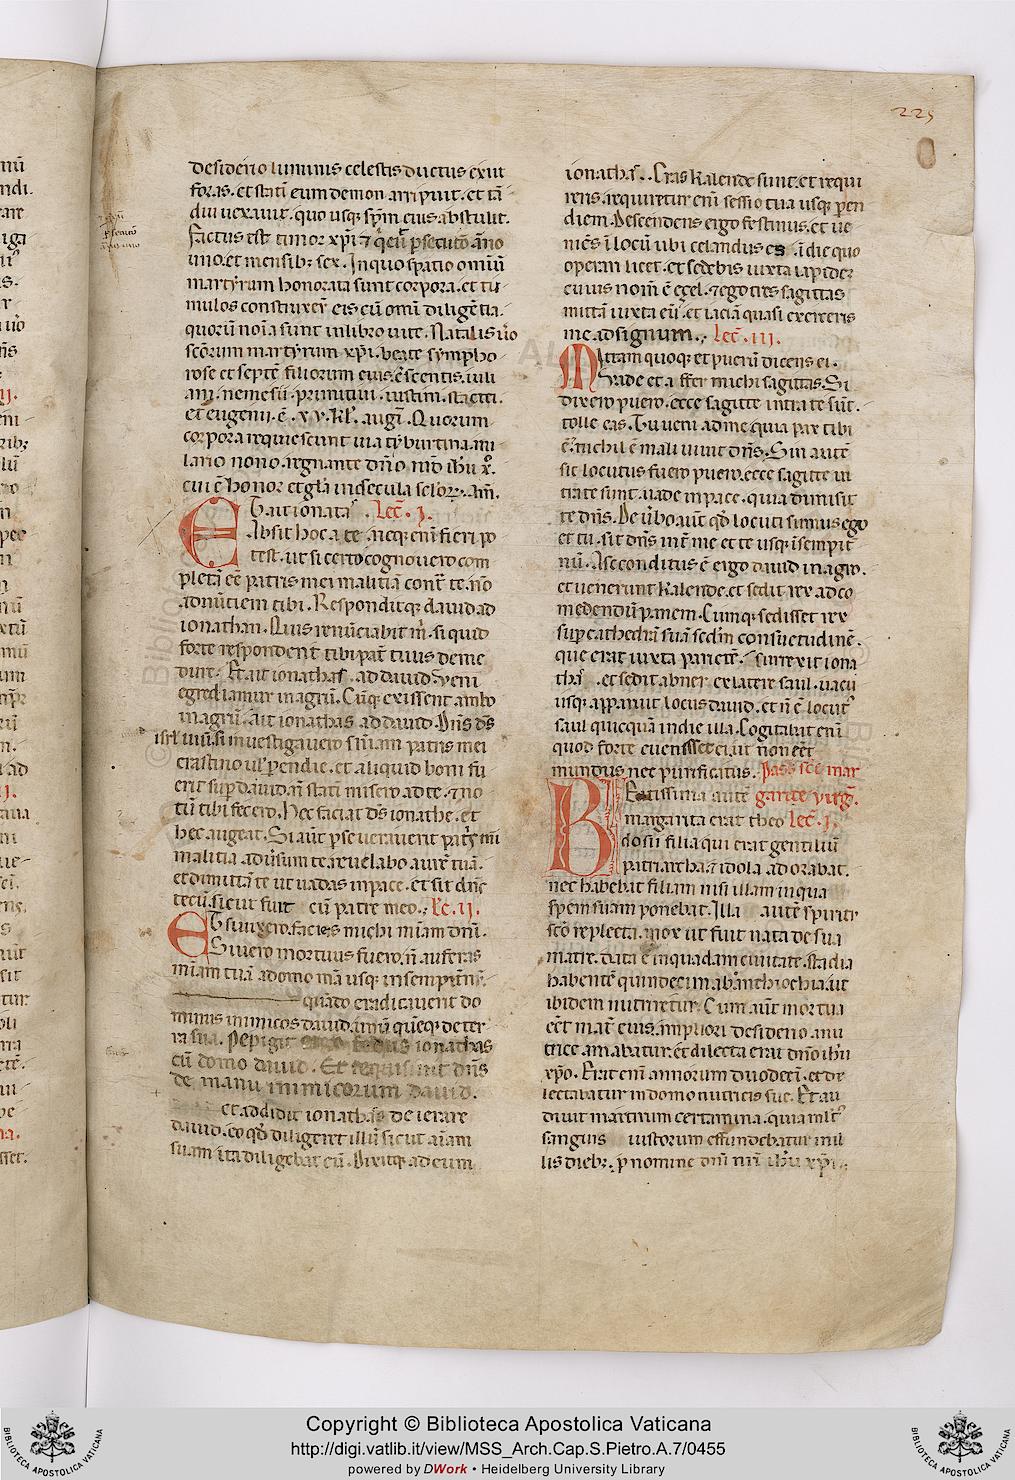 225
desiderio luminis celestis ductus exiit
foras. et stati eum demon arripuit. et tā
diu uexauit. quo usq; spm eius abstulit.
factus est timor xpi
uno. et mensib; sex. In quo spatio omiū
martyrum honorata sunt corpora. et tu
mulos construxer eis cū omi diligētia.
quorū noīa sunt in libro uite. Natalis ũo
scōrum martyrum xpi. beate sympho
rose et septē filiorum eius. iuli
ani. nemesii. primitiui. iustini. stactei.
et eugenii. ē. xv. kl. augī. Quorum
corpora requiescunt uia tyburtina. mi
lario nono. regnante dño nrō ihū x̄.
cui ē honor et gla in secula sclor. am̄.
Et ait ionata Lec̄. I.
Absit hoc a te. neq; enī fieri po
test. ut si certo cognouero com
pletā eē patris mei malitiā contˀ te. nō
adnūtiem tibi. Responditq; dauid ad
ionathan. Quis renūciabit m̄. si quid
forte responderit tibi patˀ tuus de me
dure. Et ait ionathas ad dauid. Veni
egrediamur in agrū. Cūq; exissent ambo
in agrū. ait ionathas ad dauid. Dñs ds
isrl si inuestigauero sniam patris mei
crastino ul pendie. et aliquid boni fu
erit sup dauid. et nō stati misero ad te. et no
tū tibi fecero. hec faciat ds ionathe. et
hec augeat. Si aūt pseueraverit patris mī
malitia adūsum te. reuelabo aurē tuā.
et dimittā te ut uadas in pace. et sit dñs
tecū. sicut fuit cū patre meo. Lc̄. II.
Et si uixero. facies michi miam dni.
Si uero mortuus fuero. ñ auferas
miam tuā a domo mā usq; in sempitnū.
quādo eradicauerit do
minus inimicos dauid. unū quēq; de ter
ra sua. Pepigit fedus ionathas
cū domo dauid. Et requisiuit dñs
de manu inimicorum dauid.
et addidit ionathas deierare
dauid. eo qd diligeret illū. sicut aīam
suam ita diligebat eū. Dixitq; ad eum
ionathas. Cras kalende sunt. et requi
reris. requiretur enī sessio tua usq; pen
diem. Descendens ergo festinus. et ue
niēs ī locū ubi celandus es ī die quo
operari licet. et sedebis iuxta lapidē
cuius nom̄ ē ezel. et ego tres sagittas
mittā iuxta eū. et iaciā quasi exercens
me ad signum. Lec̄. III.
Mittam quoq; et puerū dicens ei.
Vade et affer michi sagittas. Si
dixero puero. ecce sagitte intra te sūt.
tolle eas. Tu ueni ad me. quia pax tibi
ē. et nichil ē mali uiuit dñs. Sin autē
sic locutus fuero puero. ecce sagitte ul
tra te sunt. uade in pace. quia dimisit
te dñs. De ũbo aūt qd locuti sumus ego
et tu. sit dñs intˀ me et te usq; ī sempit
nū. Absconditus ē ergo dauid in agro.
et uenerunt kalende. et sedit rex ad co
medendū panem. Cumq; sedisset rex
sup cathedrā suā scdm consuetudinē.
que erat iuxta parietē. surrexit iona
thas. et sedit abner ex latere saul. uacu
usq; apparuit locus dauid. et ñ ē locutˀ
saul quicquā in die illa. Cogitabat enī
quod forte euenisset ei. ut non eēt
mundus nec purificatus. Pass scē mar
Beatissima autē garite virḡ.
margarita erat theo Lec̄. I.
dosii filia qui erat gentiliū
patriarcha. et idola adorabat.
nec habebat filiam nisi illam in qua
spem suam ponebat. Illa autē spiritu
scō repleta. mox ut fuit nata de sua
matre. data ē in quadam ciuitate. stadia
habentē quindecim ab anthiochia. ut
ibidem nutriretur. Cum aūt mortua
eēt matˀ eius. ampliori desiderio a nu
trice amabatur. et dilecta erat dño ihū
xp̄o. Erat enī annorum duodeci. et de
lectabatur in domo nutricis sue. Et au
diuit martirum certamina. quia mltˀ
sanguis iustorum effundebatur in il
lis dieb;. p nomine dni nrī ihū xpi.
Copyright © Biblioteca Apostolica Vaticana
http://digi.vatlib.it/view/MSS_Arch.Cap.S.Pietro.A.7/0455
powered by DWork • Heidelberg University Library
BIBLIOTECA APOSTOLICA VATICANA
BIBLIOTECA APOSTOLICA VATICANA